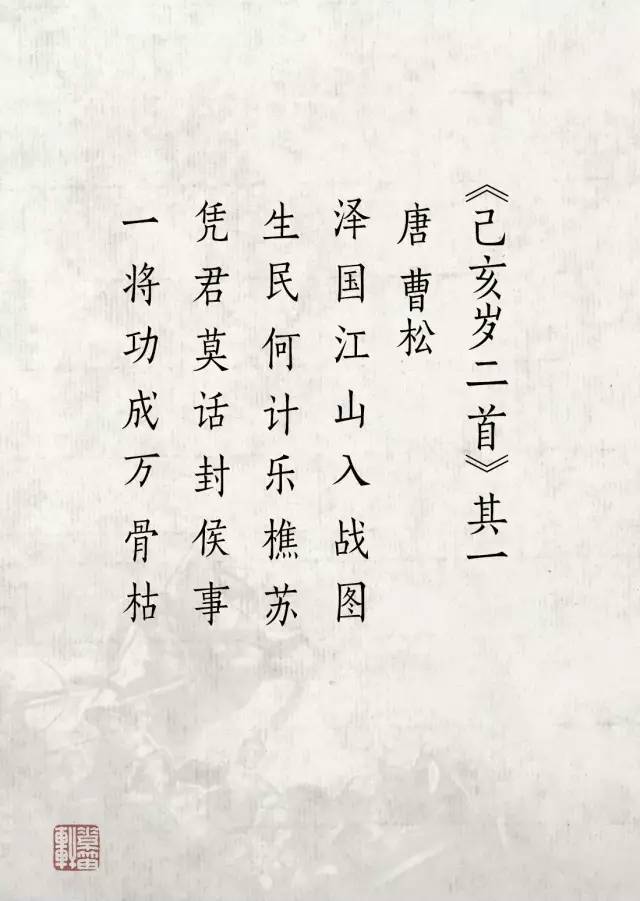 《己亥岁二首》其一
唐 曹松
泽国江山入战图
生民何计乐樵苏
凭君莫话封侯事
一将功成万骨枯